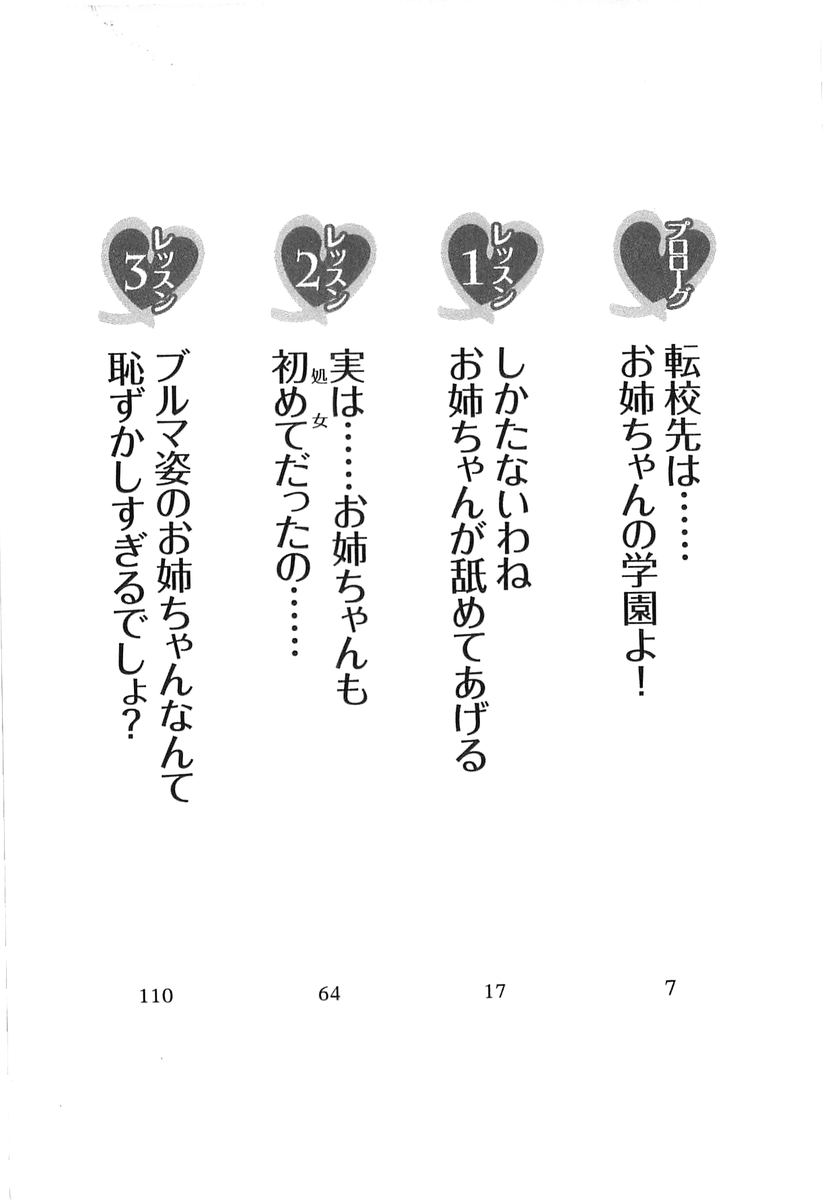 プロローグ
転校先は……
お姉ちゃんの学園よ！
7
レッスン
1
しかたないわね
お姉ちゃんが舐めてあげる
17
レッスン
2
実は……お姉ちゃんも
初めてだったの……
処女
64
レッスン
3
ブルマ姿のお姉ちゃんなんて
恥ずかしすぎるでしょ？
110